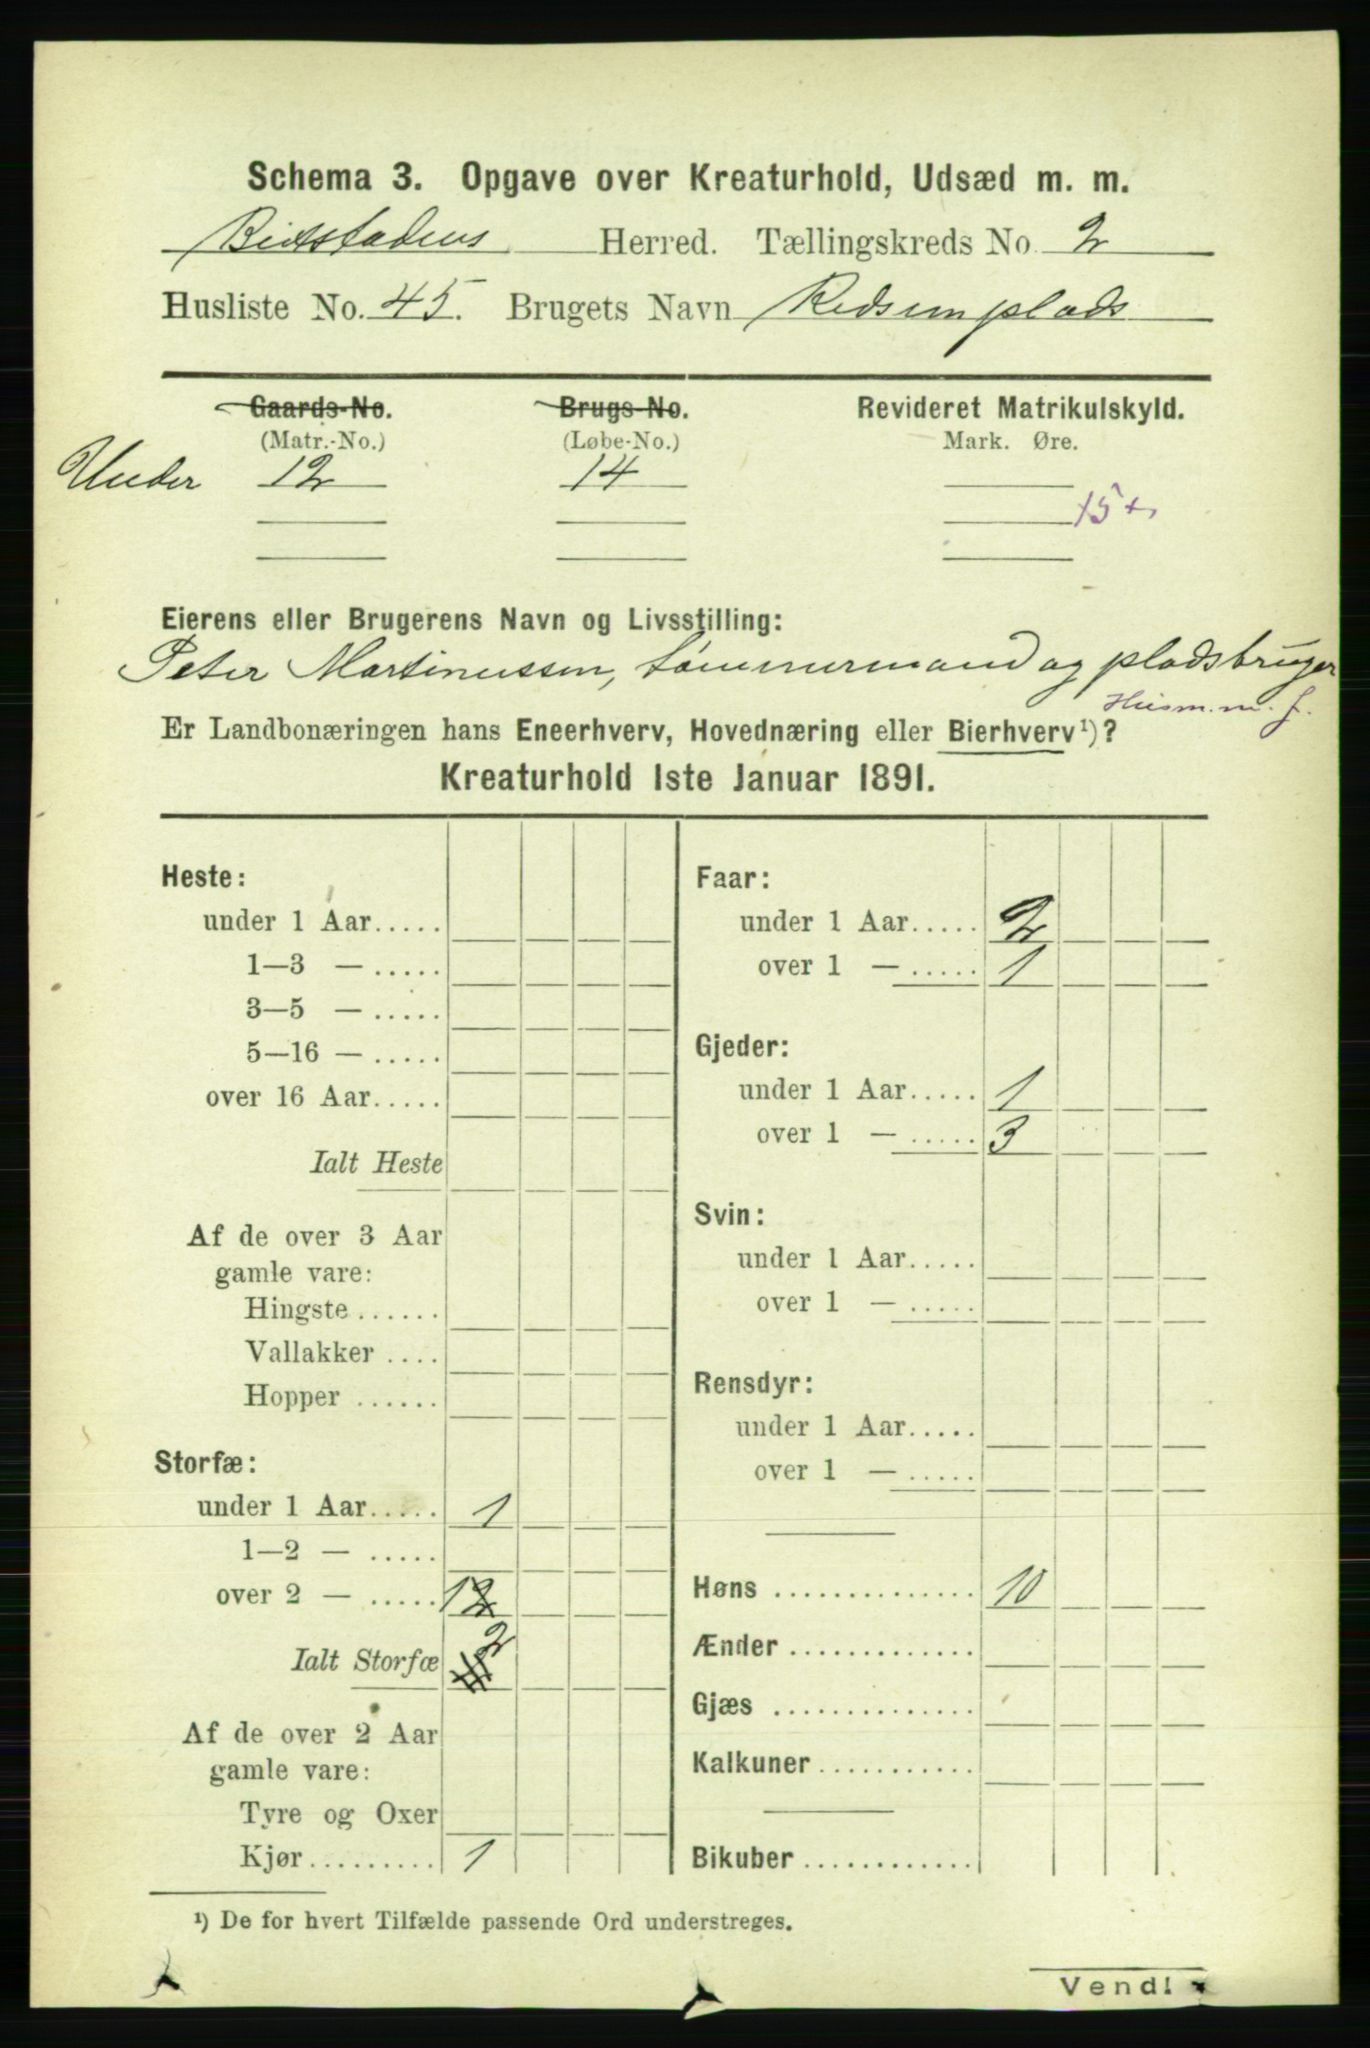 Schema 3. Opgave over Kreaturhold, Udsæd m. m.
Beitstadens Herred. Tællingskreds No. 2
Husliste No. 45. Brugets Navn Redsemplads
Gaards-No. Brugs-No. Revideret Matrikulskyld.
(Matr.-No.) (Løbe-No.) Mark. Øre.
Under 12 14
15 +
Eierens eller Brugerens Navn og Livsstilling:
Peter Martinussen, tømmermand og pladsbruger
Husm. m. f.
Er Landbonæringen hans Eneerhverv, Hovednæring eller Bierhverv¹)?
Kreaturhold 1ste Januar 1891.
Heste:
under 1 Aar.....
1—3 — .....
3—5 — .....
5—16 — .....
over 16 Aar.....
Ialt Heste
Af de over 3 Aar
gamle vare:
Hingste ......
Vallakker ....
Hopper ......
Storfæ:
under 1 Aar..... 1
1—2 — .....
over 2 — ..... 1 2
Ialt Storfæ 2
Af de over 2 Aar
gamle vare:
Tyre og Oxer
Kjør......... 1
Faar:
under 1 Aar..... 2
over 1 — ..... 1
Gjeder:
under 1 Aar..... 1
over 1 — ..... 3
Svin:
under 1 Aar.....
over 1 — .....
Rensdyr:
under 1 Aar.....
over 1 — .....
Høns .............. 10
Ænder .............
Gjæs ..............
Kalkuner...........
Bikuber ............
¹) De for hvert Tilfælde passende Ord understreges.
Vend!